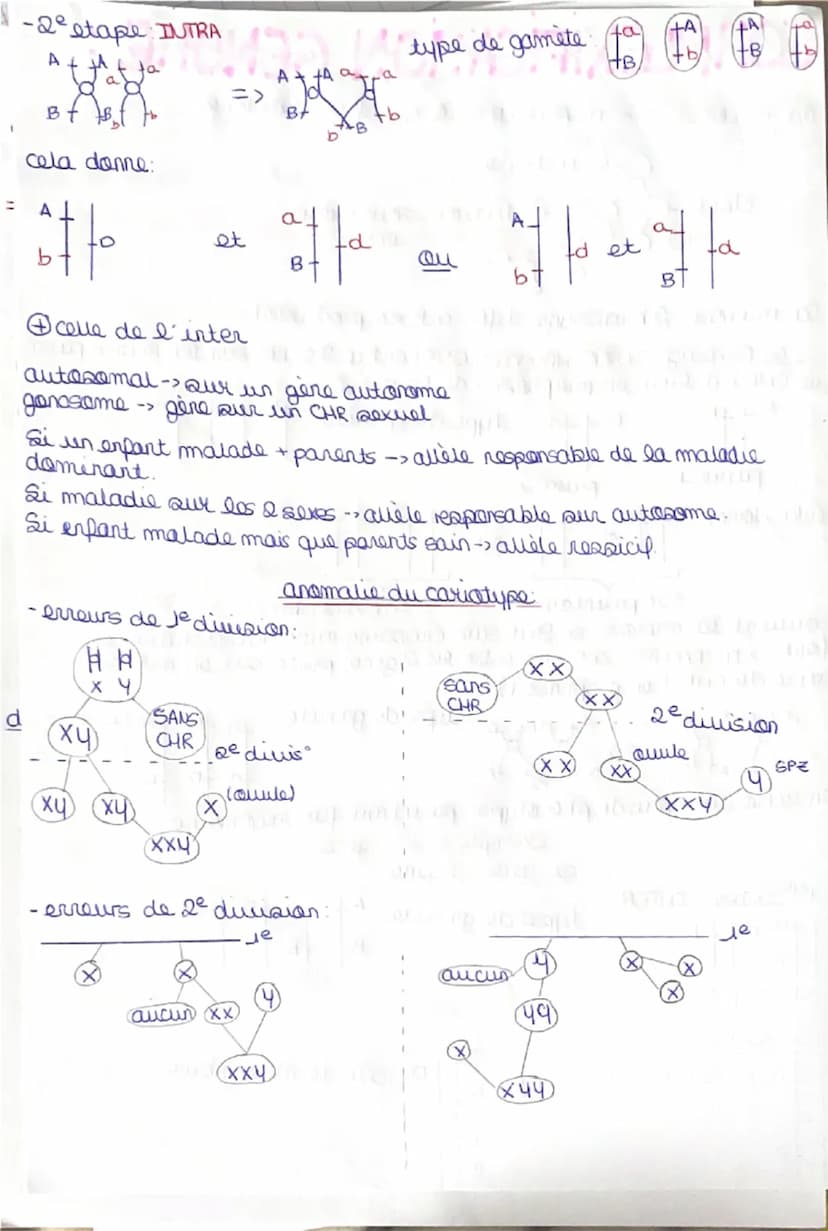 - 2e etape: INTRA
type de gamète: a B A b A B a b
A A a a
B B b b
=> A A a a
B b B b
cela donne:
= A b o et a B d ou A b d et a B d
⊕ celle de l'inter
autosomal -> sur un gène autonome
gonosome -> gène sur un CHR sexuel
Si un enfant malade + parents -> allèle responsable de la maladie
dominant.
Si maladie sur les 2 sexes -> allèle responsable sur autosome.
Si enfant malade mais que parents sain -> allèle ressicif.
anomalie du cariotype:
- erreurs de 1e division:
X Y
XY
SANS
CHR
2e divis°
XY XY X (ovule)
XXY
d
XX
sans
CHR
XX
2e division
XX XX ovule
Y SPZ
XXY
- erreurs de 2e division:
1e
X X
aucun XX Y
XXY
1e
aucun Y X X
X
YY
X
XYY